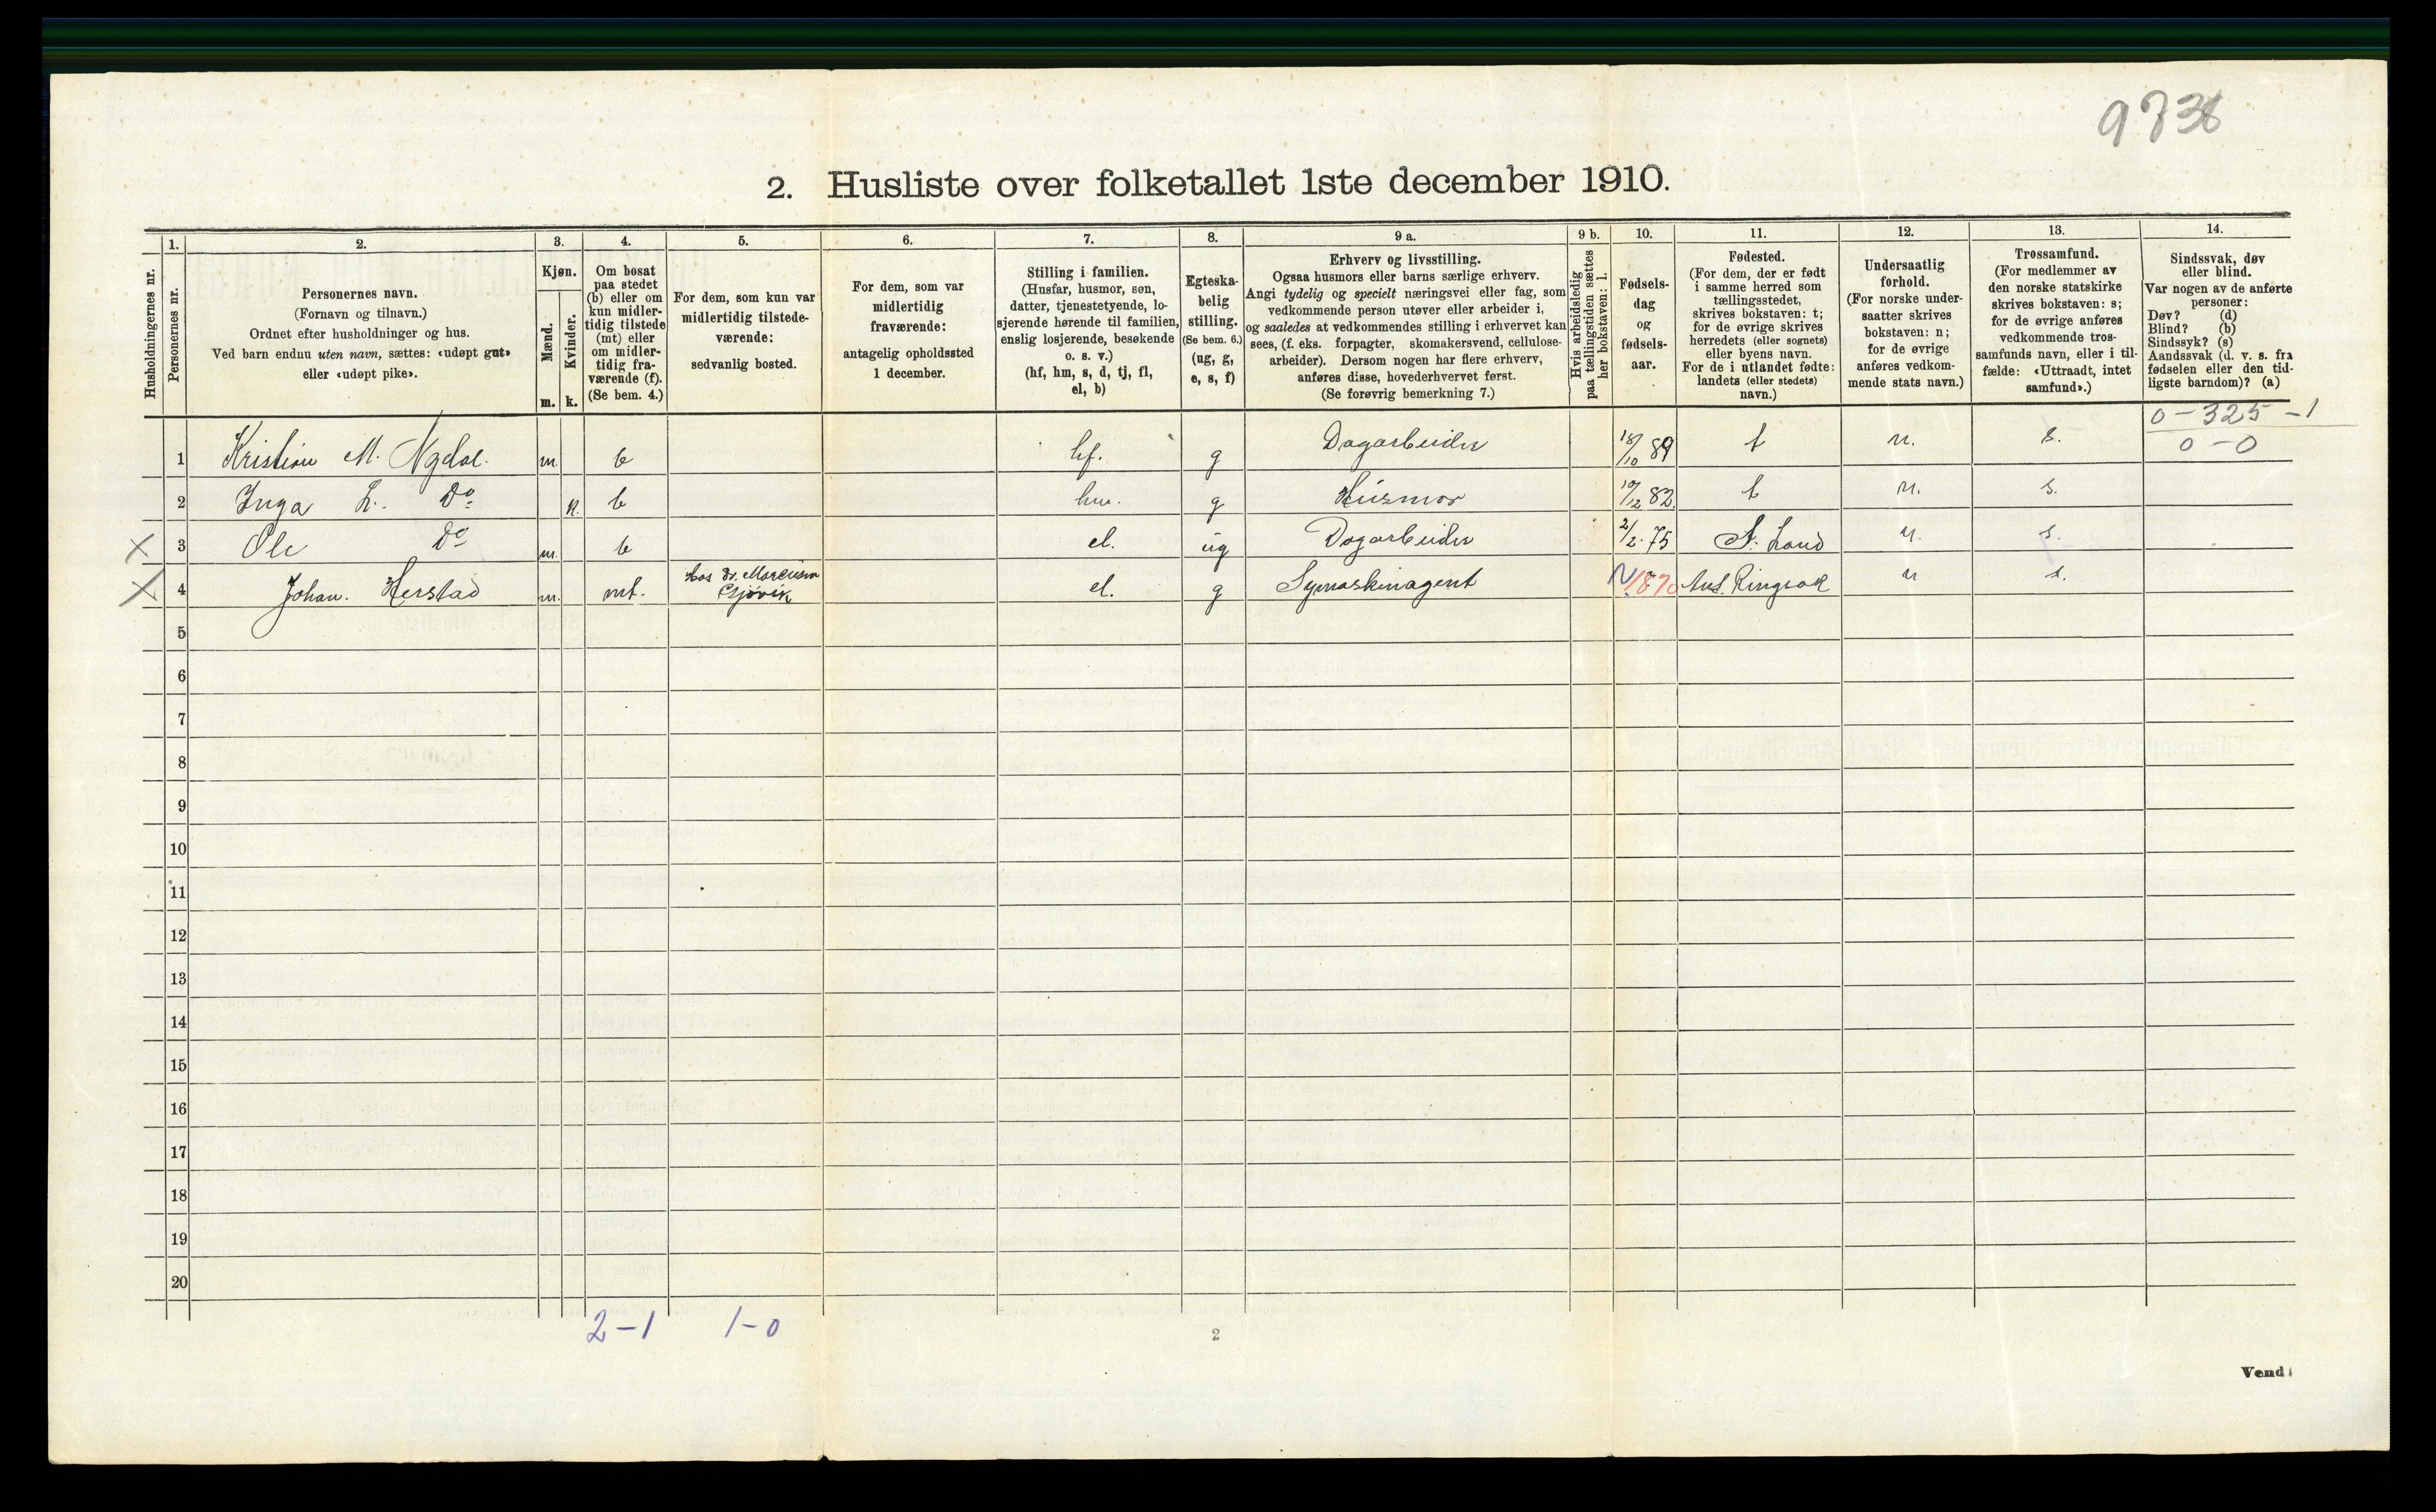 9738
2. Husliste over folketallet 1ste december 1910.
Husholdningernes nr.
1. Personernes nr.
2. Personernes navn.
(Fornavn og tilnavn.)
Ordnet efter husholdninger og hus.
Ved barn endnu uten navn, sættes: «udøpt gut»
eller «udøpt pike».
3. Kjøn.
Mænd. m.
Kvinder. k.
4. Om bosat
paa stedet
(b) eller om
kun midler-
tidig tilstede
(mt) eller
om midler-
tidig fra-
værende (f).
(Se bem. 4.)
5. For dem, som kun var
midlertidig tilstede-
værende:
sedvanlig bosted.
6. For dem, som var
midlertidig
fraværende:
antagelig opholdssted
1 december.
7. Stilling i familien.
(Husfar, husmor, søn,
datter, tjenestetyende, lo-
sjerende hørende til familien,
enslig losjerende, besøkende
o. s. v.)
(hf, hm, s, d, tj, fl,
el, b)
8. Egteska-
belig
stilling.
(Se bem. 6.)
(ug, g,
e, s, f)
9 a. Erhverv og livsstilling.
Ogsaa husmors eller barns særlige erhverv.
Angi tydelig og specielt næringsvei eller fag, som
vedkommende person utøver eller arbeider i,
og saaledes at vedkommendes stilling i erhvervet kan
sees, (f. eks. forpagter, skomakersvend, cellulose-
arbeider). Dersom nogen har flere erhverv,
anføres disse, hovederhvervet først.
(Se forøvrig bemerkning 7.)
9 b. Hvis arbeidsledig
paa tællingstiden sættes
her bokstaven: l.
10. Fødsels-
dag
og
fødsels-
aar.
11. Fødested.
(For dem, der er født
i samme herred som
tællingsstedet,
skrives bokstaven: t;
for de øvrige skrives
herredets (eller sognets)
eller byens navn.
For de i utlandet fødte:
landets (eller stedets)
navn.)
12. Undersaatlig
forhold.
(For norske under-
saatter skrives
bokstaven: n;
for de øvrige
anføres vedkom-
mende stats navn.)
13. Trossamfund.
(For medlemmer av
den norske statskirke
skrives bokstaven: s;
for de øvrige anføres
vedkommende tros-
samfunds navn, eller i til-
fælde: «Uttraadt, intet
samfund».)
14. Sindssvak, døv
eller blind.
Var nogen av de anførte
personer:
Døv? (d)
Blind? (b)
Sindssyk? (s)
Aandssvak (d. v. s. fra
fødselen eller den tid-
ligste barndom)? (a)
0-325-1
0-0
1 Kristian M. m. b hf. g Dagarbeider 18/10 89 t n. s.
2 Inga L. Do k. b hm. g Husmor 19/12 82. t n. s.
X 3 Ole Do m. b el. ug Dagarbeider 2/2 75 S. Land n. s.
X 4 Johan. Herstad m. mt. Gjøvik el. g Symaskinagent 1870 Ringsak n s.
5
6
7
8
9
10
11
12
13
14
15
16
17
18
19
20
2-1 1-0
2
Vend!